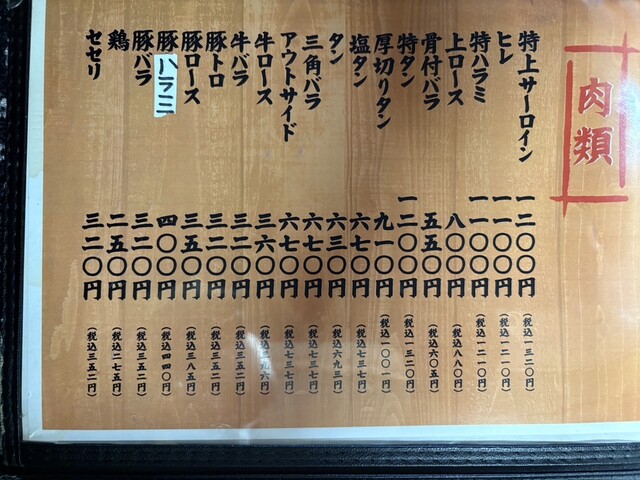 肉類
特上サーロイン 一二〇〇円 (税込一三二〇円)
ヒレ 一一〇〇円 (税込一二一〇円)
特ハラミ 一一〇〇円 (税込一二一〇円)
上ロース 八〇〇円 (税込八八〇円)
骨付バラ 五五〇円 (税込六〇五円)
特タン 一二〇〇円 (税込一三二〇円)
厚切りタン 九一〇円 (税込一〇〇一円)
塩タン 六七〇円 (税込七三七円)
タン 六三〇円 (税込六九三円)
三角バラ 六七〇円 (税込七三七円)
アウトサイド 六七〇円 (税込七三七円)
牛ロース 三六〇円 (税込三九六円)
牛バラ 三二〇円 (税込三五二円)
豚トロ 三二〇円 (税込三五二円)
豚ロース 三五〇円 (税込三八五円)
豚ハラミ 四〇〇円 (税込四四〇円)
豚バラ 三二〇円 (税込三五二円)
鶏 二五〇円 (税込二七五円)
セセリ 三二〇円 (税込三五二円)